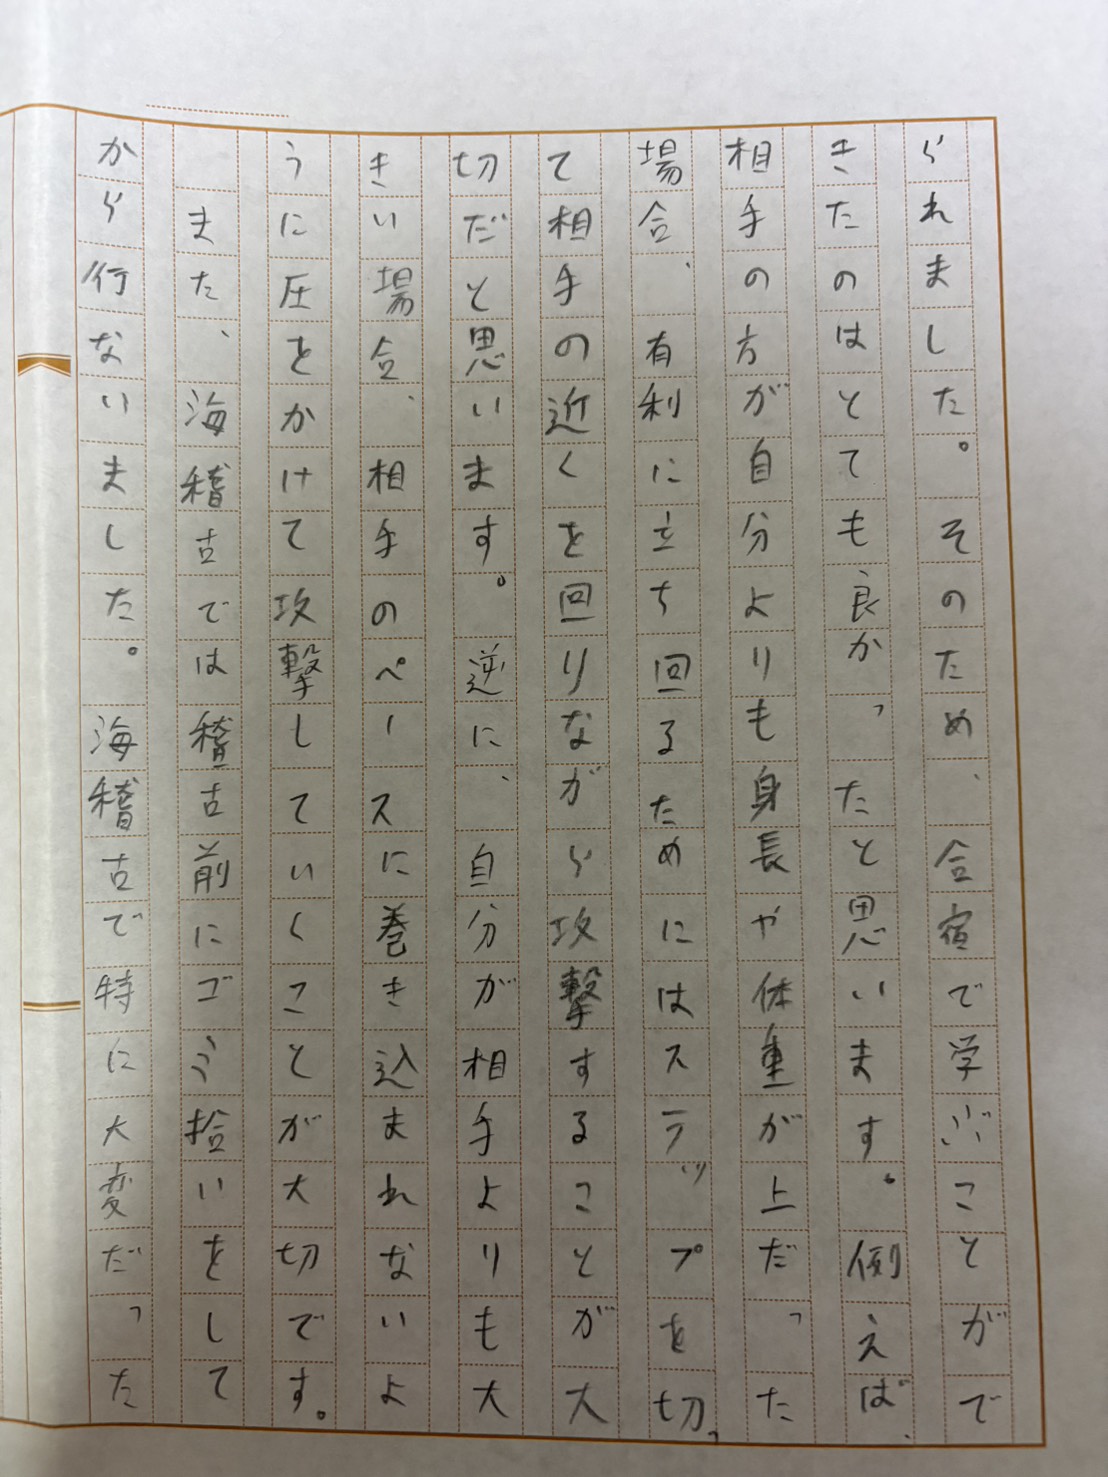 られました。そのため、合宿で学ぶことがで
きたのはとても良かったと思います。例えば、
相手の方が自分よりも身長や体重が上だった
場合、有利に立ち回るためにはステップを切っ
て相手の近くを回りながら攻撃することが大
切だと思います。逆に、自分が相手よりも大
きい場合、相手のペースに巻き込まれないよ
うに圧をかけて攻撃していくことが大切です。
また、海稽古では稽古前にゴミ拾いをして
から行ないました。海稽古で特に大変だった